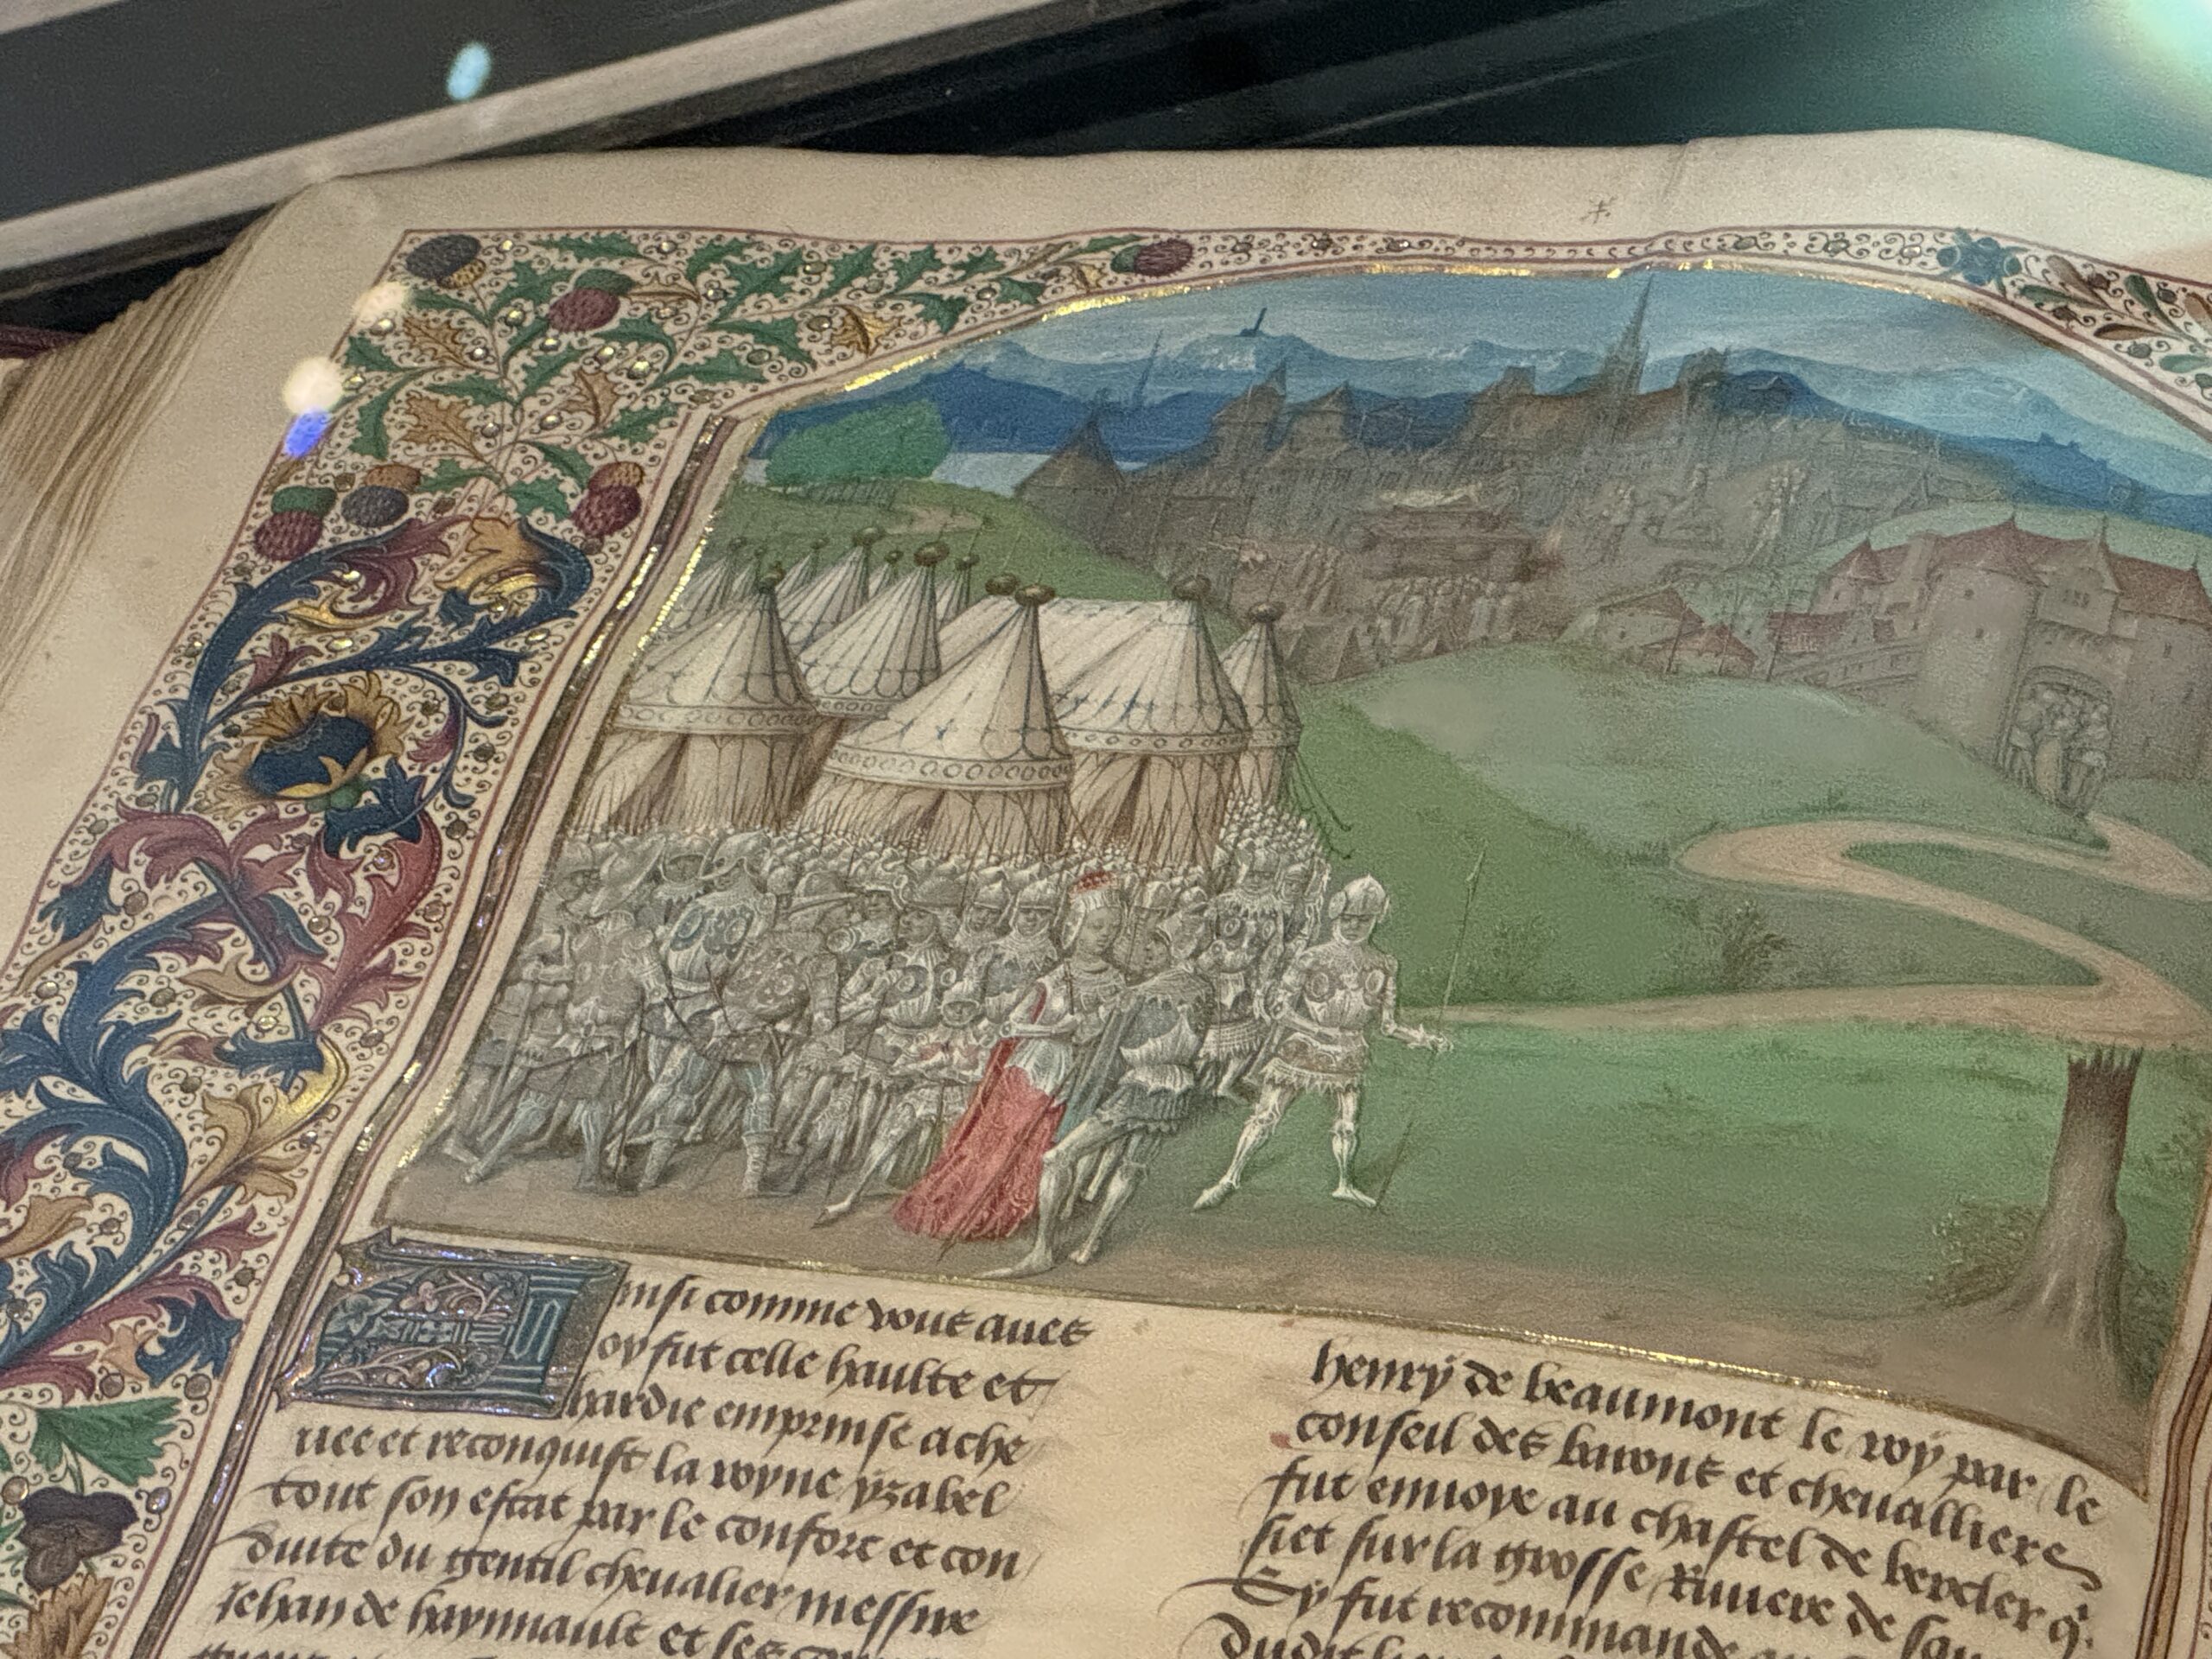 Ainsi comme vous aues
oy fut celle haulte et
hardie emprinse ache
uee et reconquist la royne yzabel
tout son estat par le confort et con
duite du gentil cheualier messire
Jehan de haynnault et ses
henry de beaumont le roy par le
conseil des barons et cheualliers
fut enuoye au chastel de bercler qi
siet sur la grosse Riuiere de
Sy fut recommande au
dudit